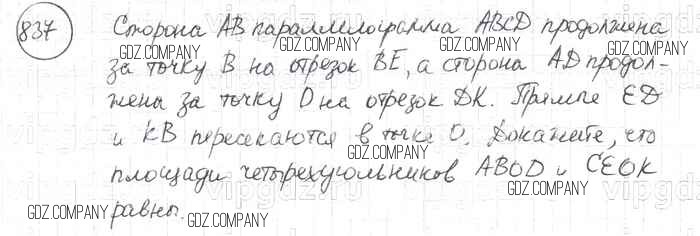 837 Сторона AB параллелограмма ABCD продолжена
GDZ.COMPANY GDZ.COMPANY GDZ.COMPANY
за точку B на отрезок BE, а сторона AD продол-
жена за точку D на отрезок DK. Прямые ED
GDZ.COMPANY
и KB пересекаются в точке O. Докажите, что
GDZ.COMPANY
площади четырехугольников ABOD и CEOK
GDZ.COMPANY GDZ.COMPANY GDZ.COMPANY
равны.